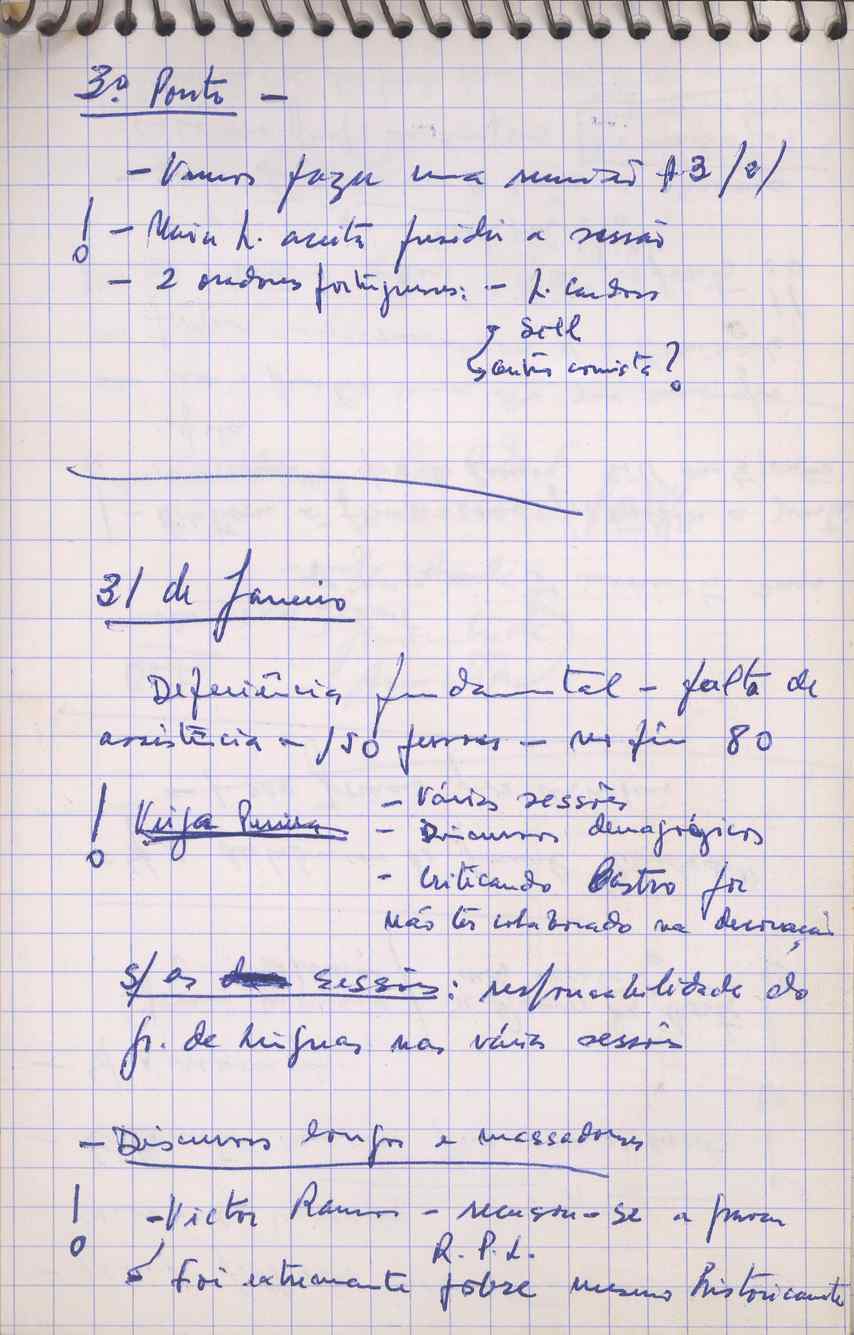 3º Ponto —
– Vamos fazer uma reunião 13/2/
! – Maria L. aceita presidir a sessão
– 2 oradores portugueses: – L. Cardoso
Sell
outro comista?
31 de Janeiro
Deficiência fundamental – falta de
assistência – 150 pessoas – no fim 80
! Veiga Pereira
– Várias sessões
– Discursos demagógicos
– Criticando Castro por
não ter colaborado na decoração
S/ as sessões: responsabilidade do
gr. de Línguas nas várias sessões
– Discursos longos e massadores
! – Victor Ramos – recusou-se a parar
R. P. L.
Foi extremamente pobre mesmo historicamente